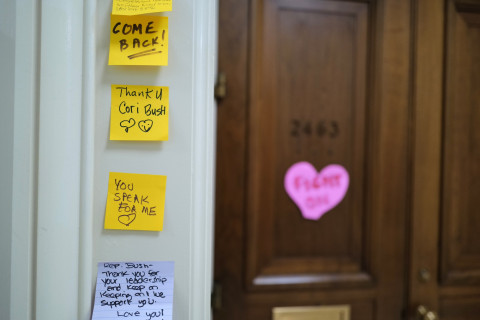 COME
BACK!
Thank U
Cori Bush
YOU
SPEAK
FOR ME
Rep. Bush-
Thank you for
your leadership
and keep on
keeping on! We
support you.
Love you!
2463
FIGHT
ON